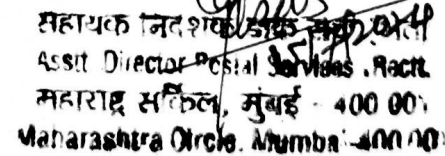 सहायक निदेशक डाक
Asstt Director Postal Services, Rectt.
महाराष्ट्र सर्किल, मुंबई - 400 001
Maharashtra Circle, Mumbai - 400 001